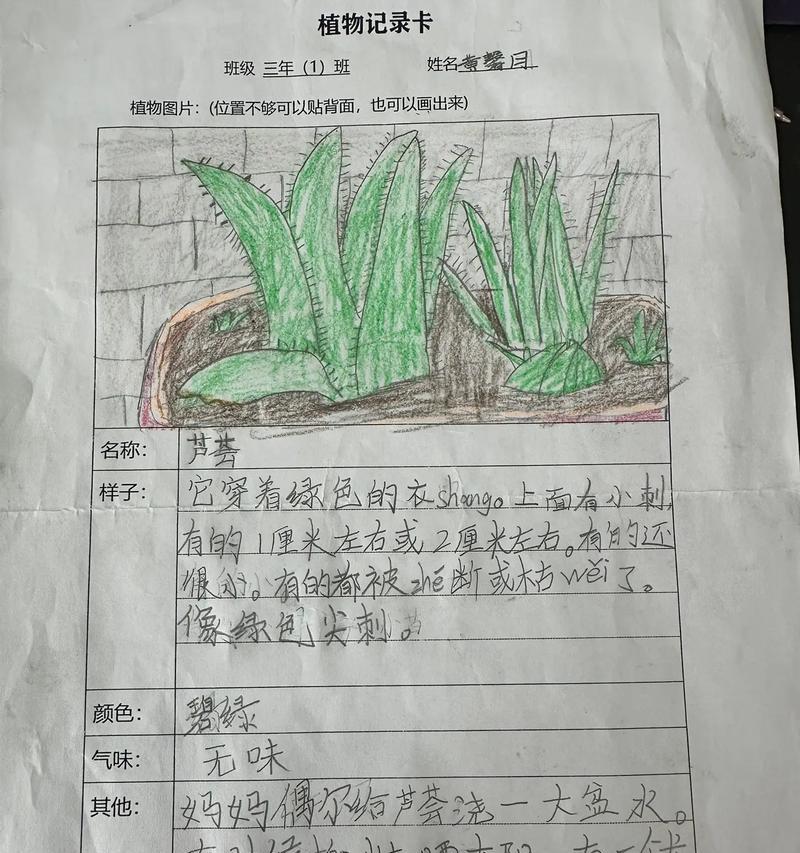 植物记录卡
班级 三年（1）班 姓名 黄馨月
植物图片：(位置不够可以贴背面，也可以画出来)
名称： 芦荟
样子： 它穿着绿色的衣shang。上面有小刺，
有的1厘米左右或2厘米左右。有的还
很小。有的都被zhé断或枯wěi了。
像绿色尖刺。
颜色： 碧绿
气味： 无味
其他： 妈妈偶尔给芦荟浇一大盆水。